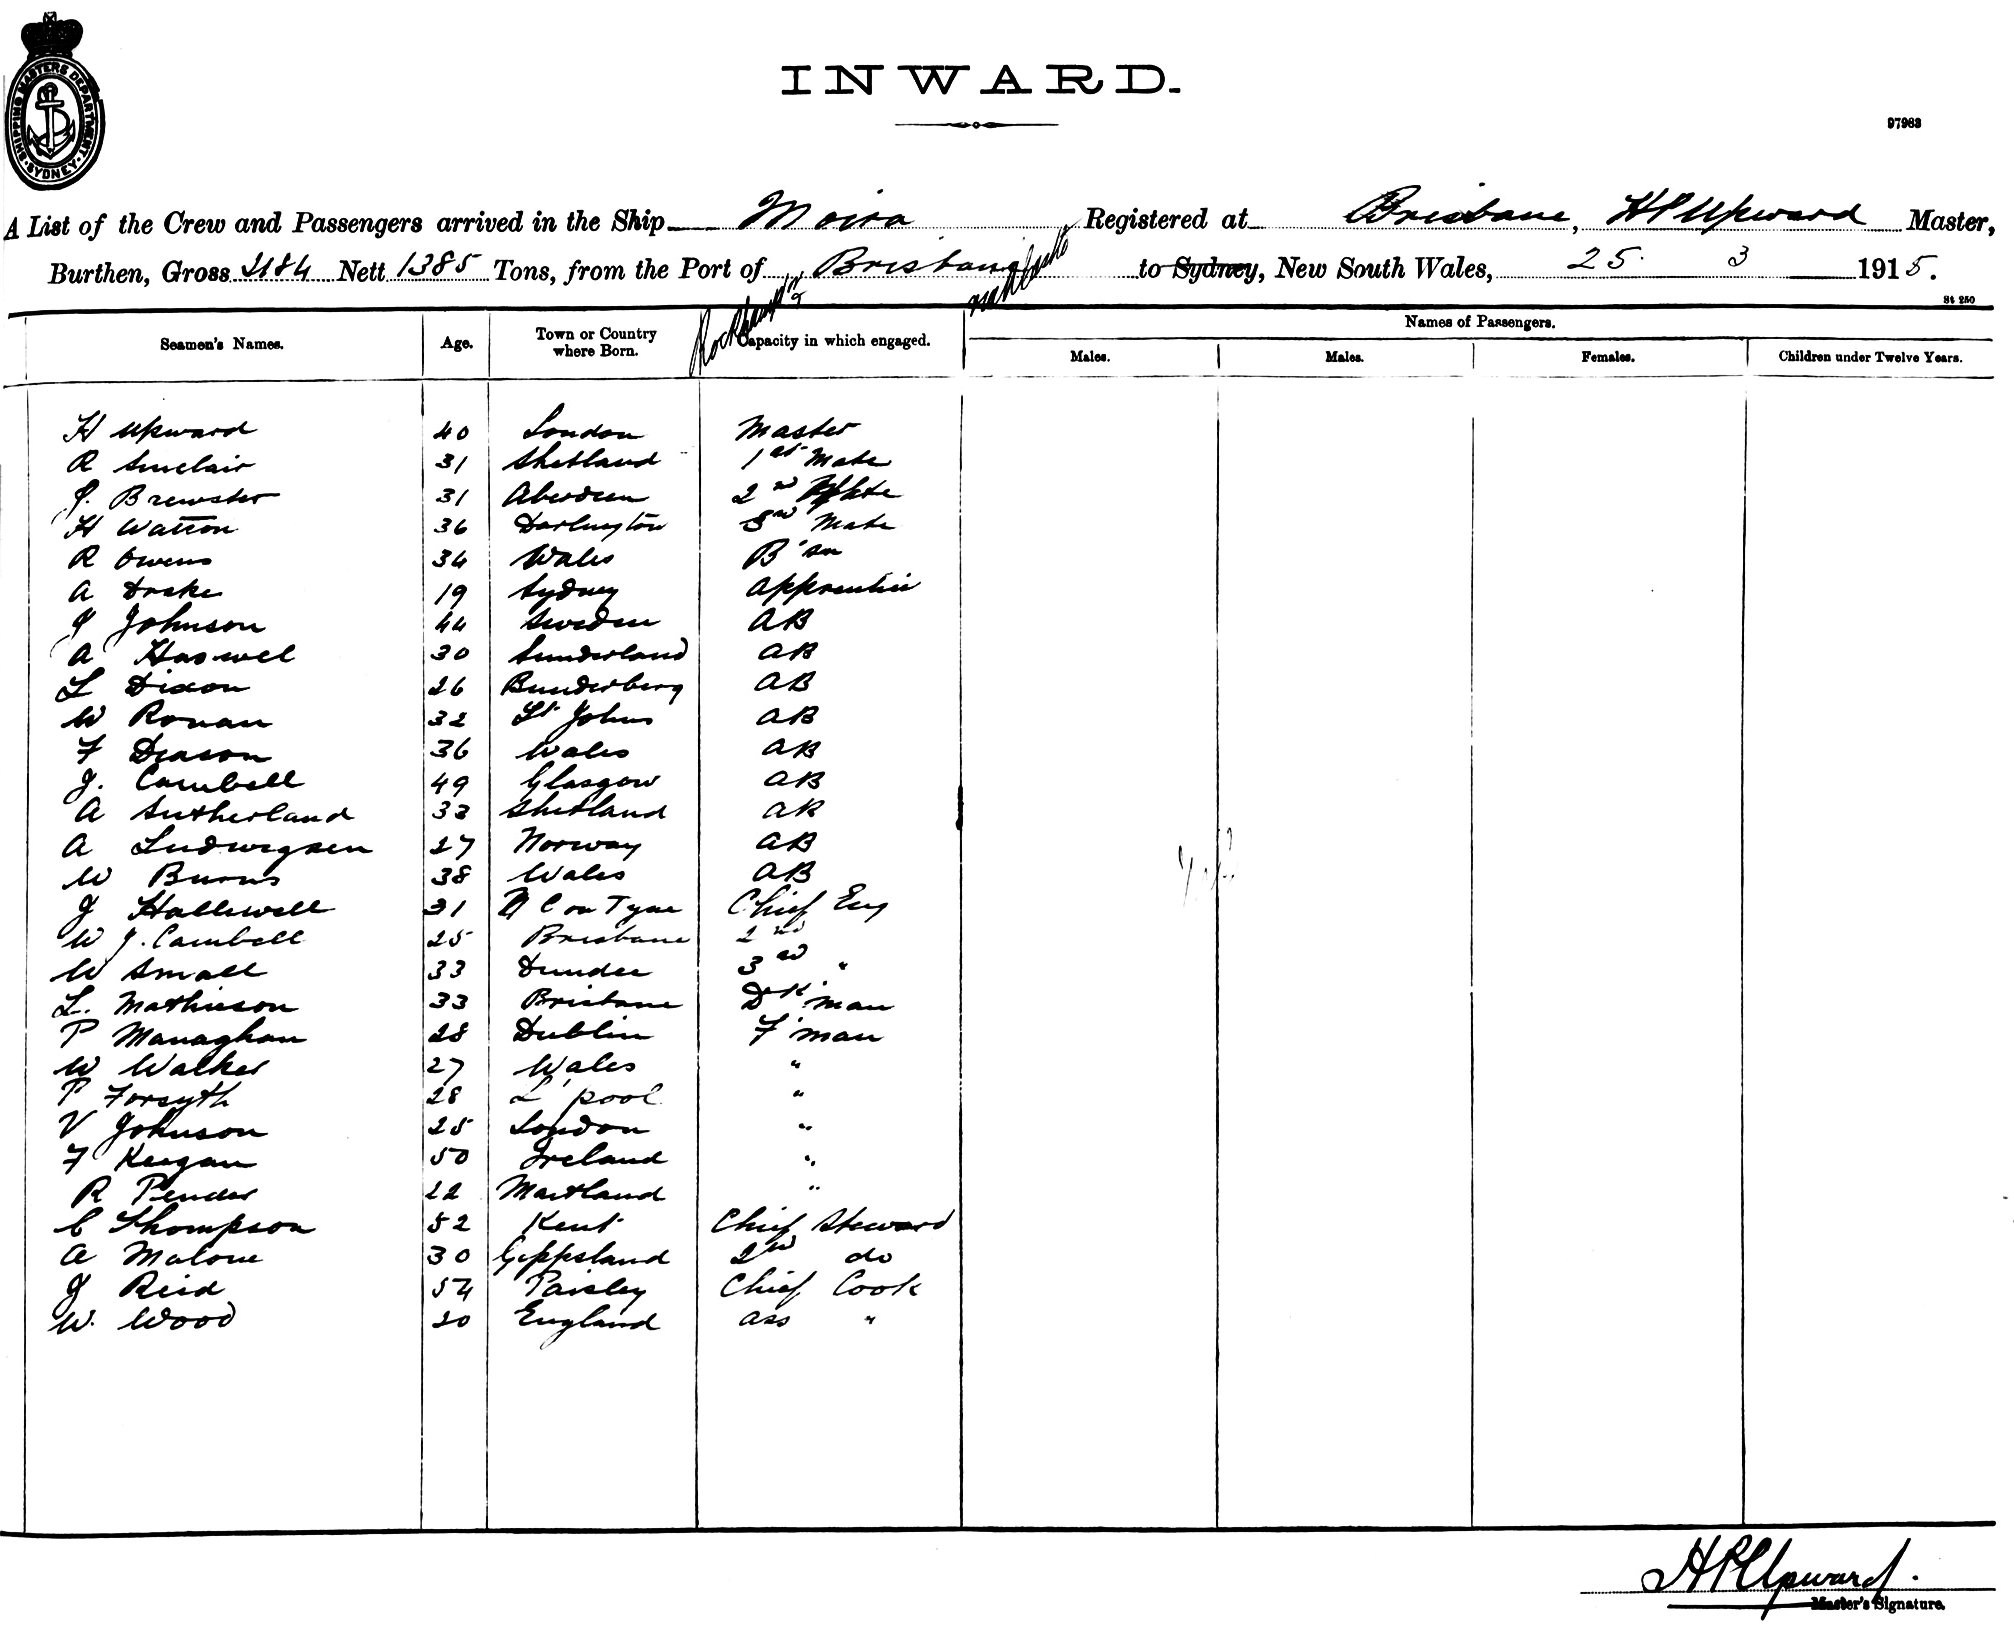 SHIPPING MASTERS DEPARTMENT. SYDNEY
INWARD.
97983
A List of the Crew and Passengers arrived in the Ship Moira Registered at Brisbane, H P Upward Master,
Burthen, Gross 2184 Nett 1385 Tons, from the Port of Brisbane to Sydney, New South Wales, 25. 3 1915.
St 250
Seamen's Names. Age. Town or Country where Born. Capacity in which engaged. Names of Passengers.
Males. Males. Females. Children under Twelve Years.
H Upward 40 London Master
R Sinclair 31 Shetland 1st Mate
J. Brewster 31 Aberdeen 2nd Mate
H Watson 36 Darlington 3rd Mate
R Owens 34 Wales B'sn
A Drake 19 Sydney Apprentice
J Johnson 44 Sweden AB
A Haswel 30 Sunderland AB
L Dixon 26 Bunderberg AB
W Ronan 32 St Johns AB
F Deason 36 Wales AB
J. Cambell 49 Glasgow AB
A Sutherland 33 Shetland AB
A Ludwigsen 27 Norway AB
W Burns 38 Wales AB
J Halliwell 31 N C on Tyne Chief Eng
W J. Cambell 25 Brisbane 2nd
W Small 33 Dundee 3rd "
L. Mathieson 33 Brisbane Dk'man
P Managhan 28 Dublin F'man
W Walker 27 Wales "
P Forsyth 28 L'pool "
V Johnson 25 London "
F Keegan 50 Ireland "
R Pender 22 Maitland "
C Thompson 52 Kent Chief Steward
A Malone 30 Gippsland 2nd do
J Reid 54 Paisley Chief Cook
W. Wood 20 England ass "
H P Upward.
Master's Signature.